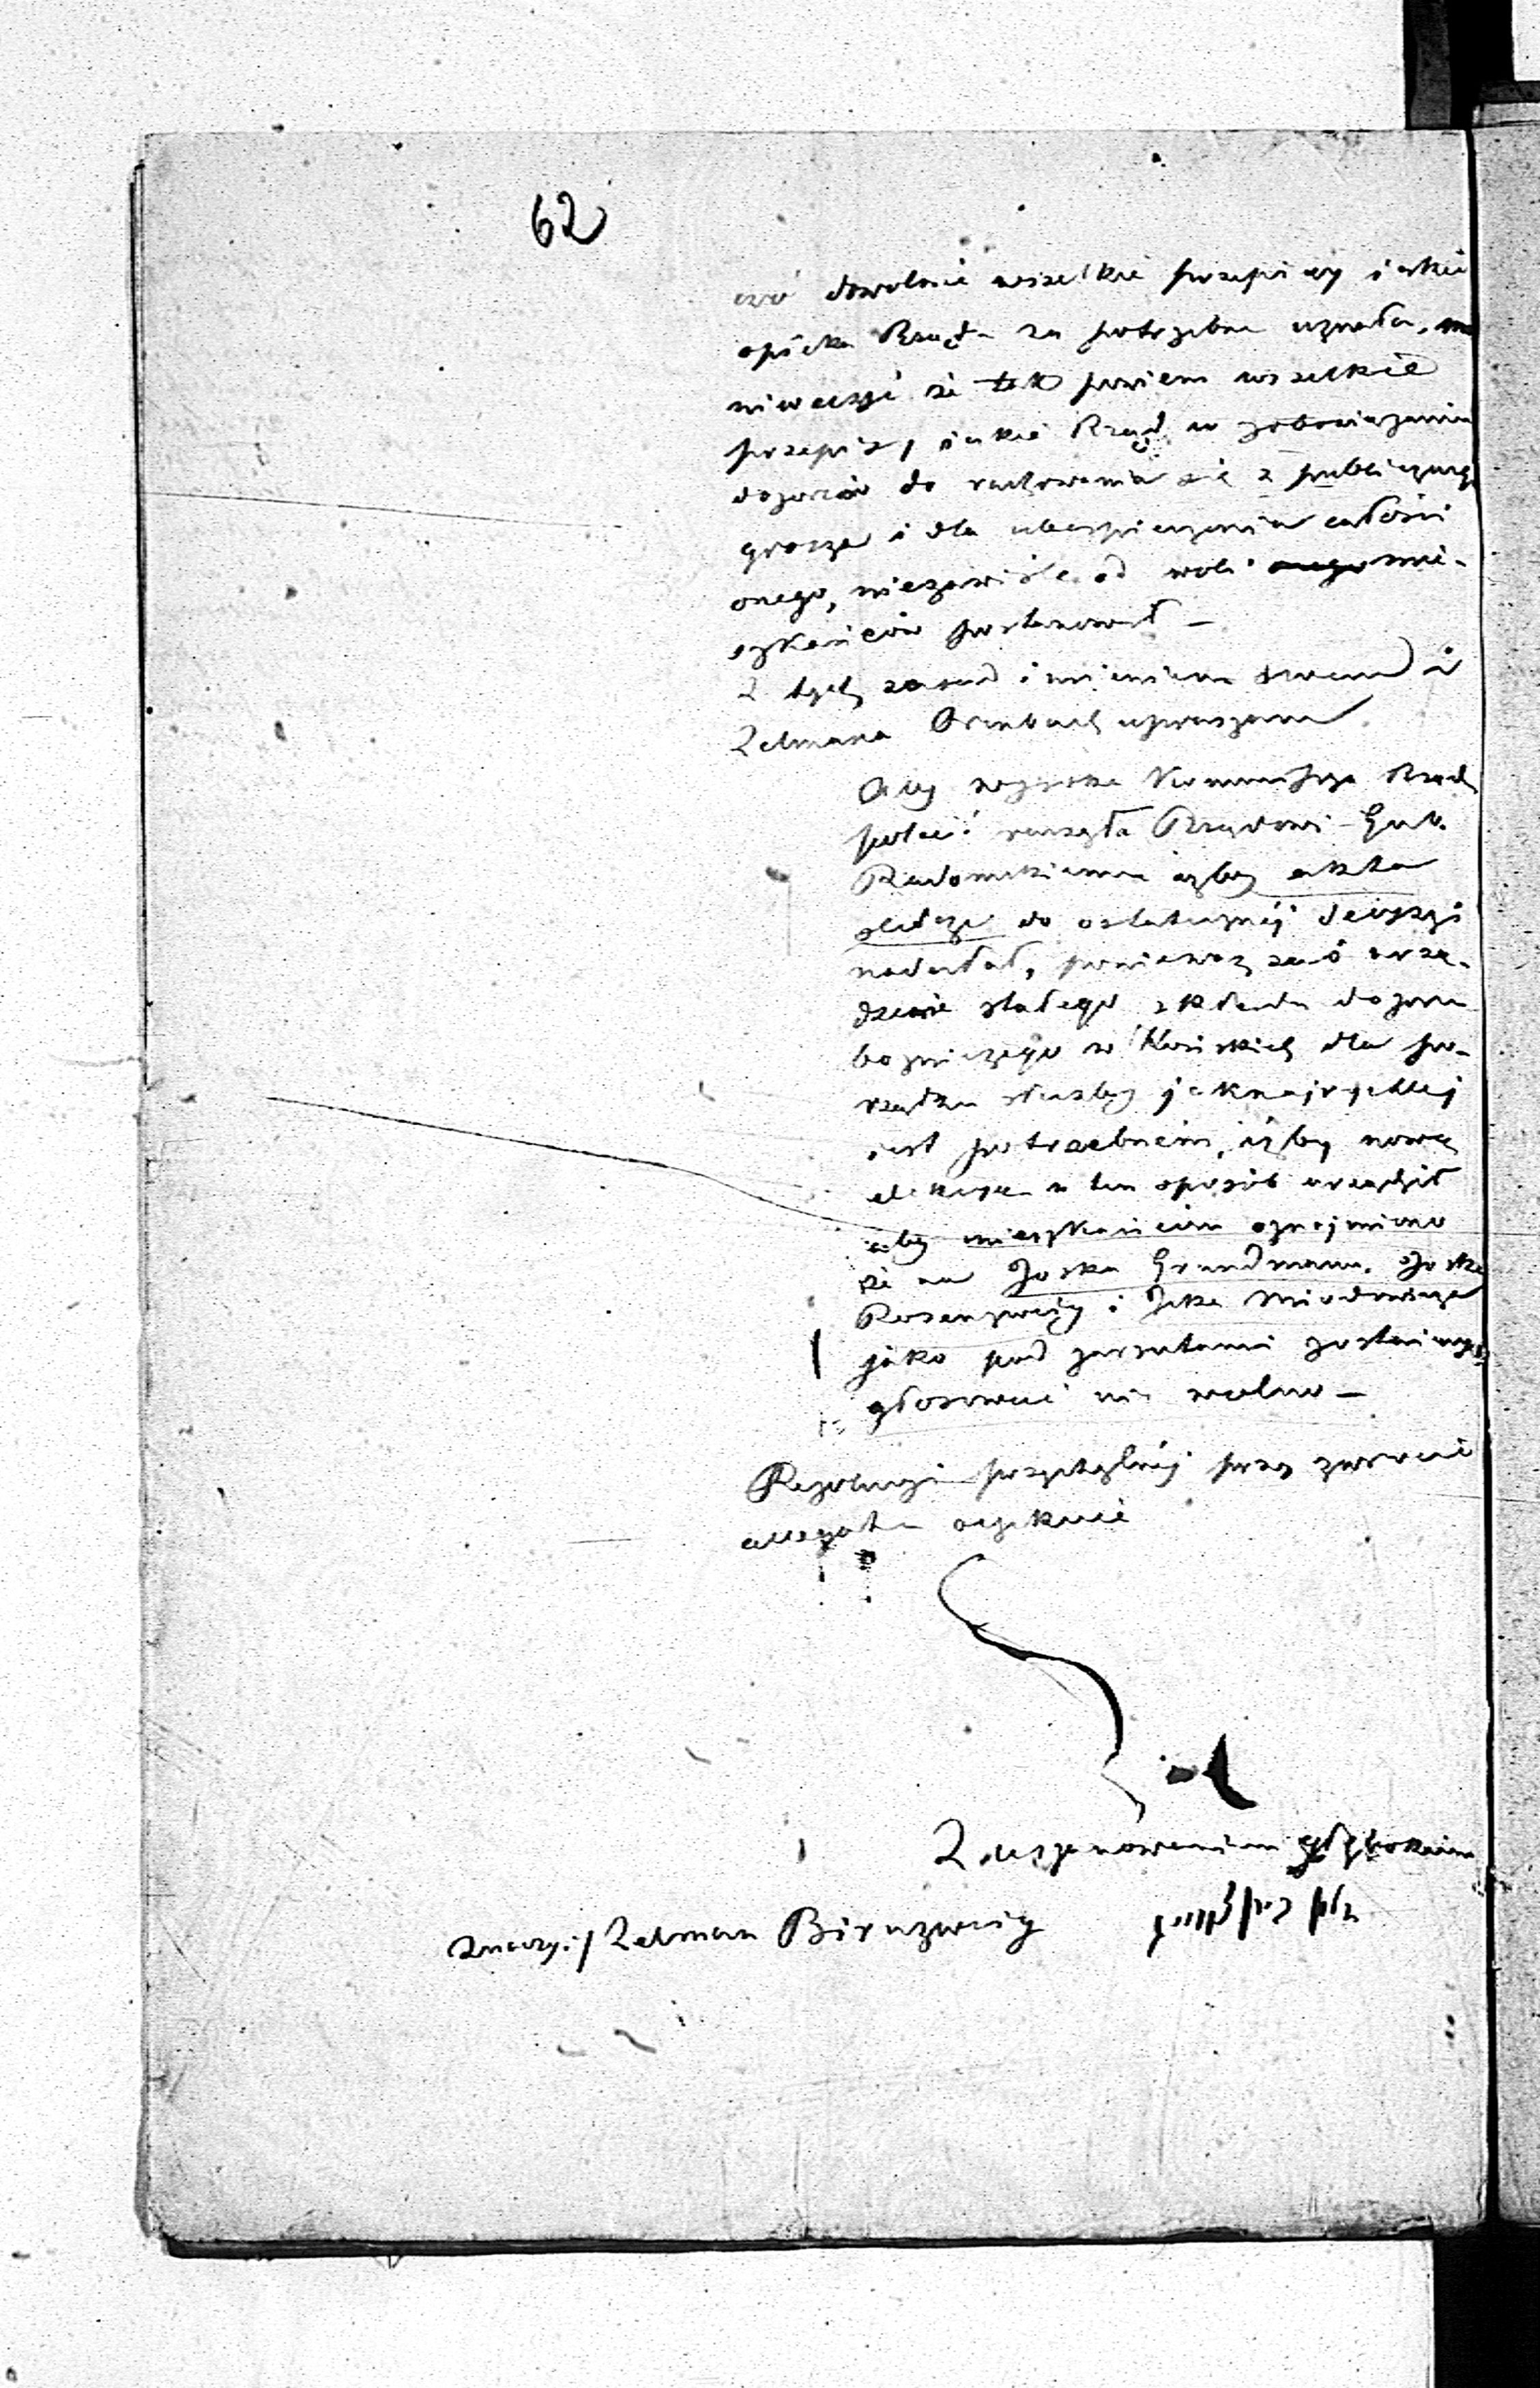 62
czać dowolnie wszelkie przepisy jakie
opieka Rządu za potrzebne uznała,
niweczyć że tak powiem wszelkie
przepisy jakie Rząd w zobowiązaniu
dozorców do rachowania się z publicznego
grosza i dla ubezpieczenia całości
onego, niezawiśle od woli mie-
szkańców postanowił —
Z tych zasad imieniem swem i
Zelmana Orenbach upraszam
Aby wysoka Kommissya Rząd.
polecić raczyła Rządowi Gub.
Radomskiemu ażby akta
służące do ostatecznéj decyzyi
nadesłał, ponieważ zaś urzą-
dzenie stałego składu dozoru
bożniczego w Końskich dla po-
rządku służby jaknajrychlej
jest potrzebnem, iżby nową
elekcyą w ten sposób urządził
aby mieszkańcom oznajmiono
że na Joska Grundmann, Joska
Rosenzweig i Joska Miodownika
jako pod zarzutami zostających
głosować nie wolno —
Rezolucyi przychylnéj przy zwrocie
allegatu oczekuie
Z uszanowaniem głębokiem
znaczy :/ Zelman Birnzweig